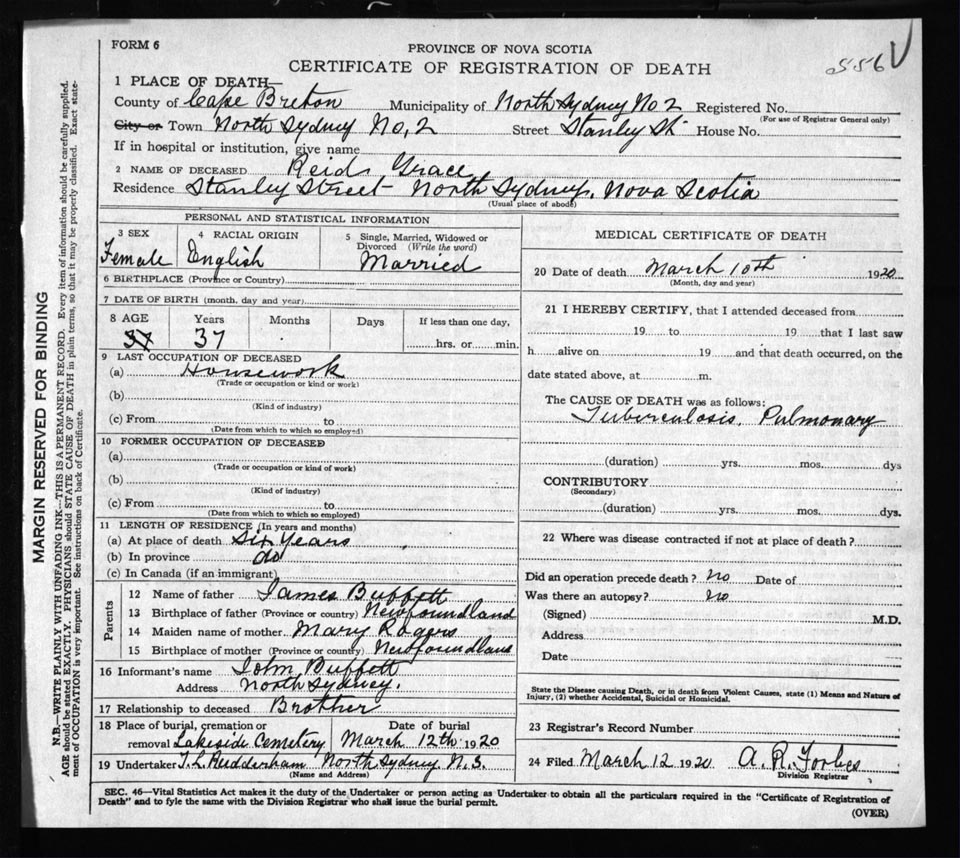 FORM 6
556 V
PROVINCE OF NOVA SCOTIA
CERTIFICATE OF REGISTRATION OF DEATH
1 PLACE OF DEATH—
County of Cape Breton Municipality of North Sydney No 2 Registered No.
(For use of Registrar General only)
City or Town North Sydney No, 2 Street Stanley St House No.
If in hospital or institution, give name
2 NAME OF DECEASED Reid, Grace
Residence Stanley Street - North Sydney, Nova Scotia
(Usual place of abode)
PERSONAL AND STATISTICAL INFORMATION
3 SEX Female
4 RACIAL ORIGIN English
5 Single, Married, Widowed or Divorced (Write the word) Married
6 BIRTHPLACE (Province or Country)
7 DATE OF BIRTH (month, day and year)
8 AGE 37 Years 37 Months Days If less than one day, hrs. or min.
9 LAST OCCUPATION OF DECEASED
(a) Housework
(Trade or occupation or kind or work)
(b)
(Kind of industry)
(c) From to
(Date from which to which so employed)
10 FORMER OCCUPATION OF DECEASED
(a)
(Trade or occupation or kind of work)
(b)
(Kind of industry)
(c) From to
(Date from which to which so employed)
11 LENGTH OF RESIDENCE (In years and months)
(a) At place of death Six Years
(b) In province do
(c) In Canada (if an immigrant)
Parents
12 Name of father James Buffett
13 Birthplace of father (Province or country) Newfoundland
14 Maiden name of mother Mary Rogers
15 Birthplace of mother (Province or country) Newfoundland
16 Informant's name John Buffett
Address North Sydney.
17 Relationship to deceased Brother
18 Place of burial, cremation or removal Lakeside Cemetery
Date of burial March 12th 1920
19 Undertaker T. L. Rudderham North Sydney N.S.
(Name and Address)
MEDICAL CERTIFICATE OF DEATH
20 Date of death March 10th 1920
(Month, day and year)
21 I HEREBY CERTIFY, that I attended deceased from
19 to 19 that I last saw
h alive on 19 and that death occurred, on the
date stated above, at m.
The CAUSE OF DEATH was as follows:
Tuberculosis, Pulmonary
(duration) yrs. mos. dys
CONTRIBUTORY
(Secondary)
(duration) yrs. mos. dys.
22 Where was disease contracted if not at place of death?
Did an operation precede death? No Date of
Was there an autopsy? No
(Signed) M.D.
Address
Date
State the Disease causing Death, or in death from Violent Causes, state (1) Means and Nature of
Injury, (2) whether Accidental, Suicidal or Homicidal.
23 Registrar's Record Number
24 Filed March 12 1920 A. R. Forbes
Division Registrar
SEC. 46—Vital Statistics Act makes it the duty of the Undertaker or person acting as Undertaker to obtain all the particulars required in the "Certificate of Registration of
Death" and to fyle the same with the Division Registrar who shall issue the burial permit.
(OVER)
MARGIN RESERVED FOR BINDING
N.B.—WRITE PLAINLY WITH UNFADING INK—THIS IS A PERMANENT RECORD. Every item of information should be carefully supplied.
AGE should be stated EXACTLY. PHYSICIANS should STATE CAUSE OF DEATH in plain terms, so that it may be properly classified. Exact state-
ment of OCCUPATION is very important. See instructions on back of Certificate.